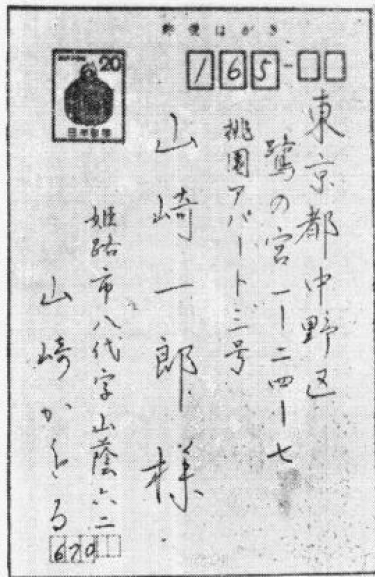 郵便はがき
20
日本郵便
165
東京都中野区
鷺の宮一ー二四ー七
桃園アパート三号
山崎一郎様
姫路市八代字山蔭六二
山崎かをる
670